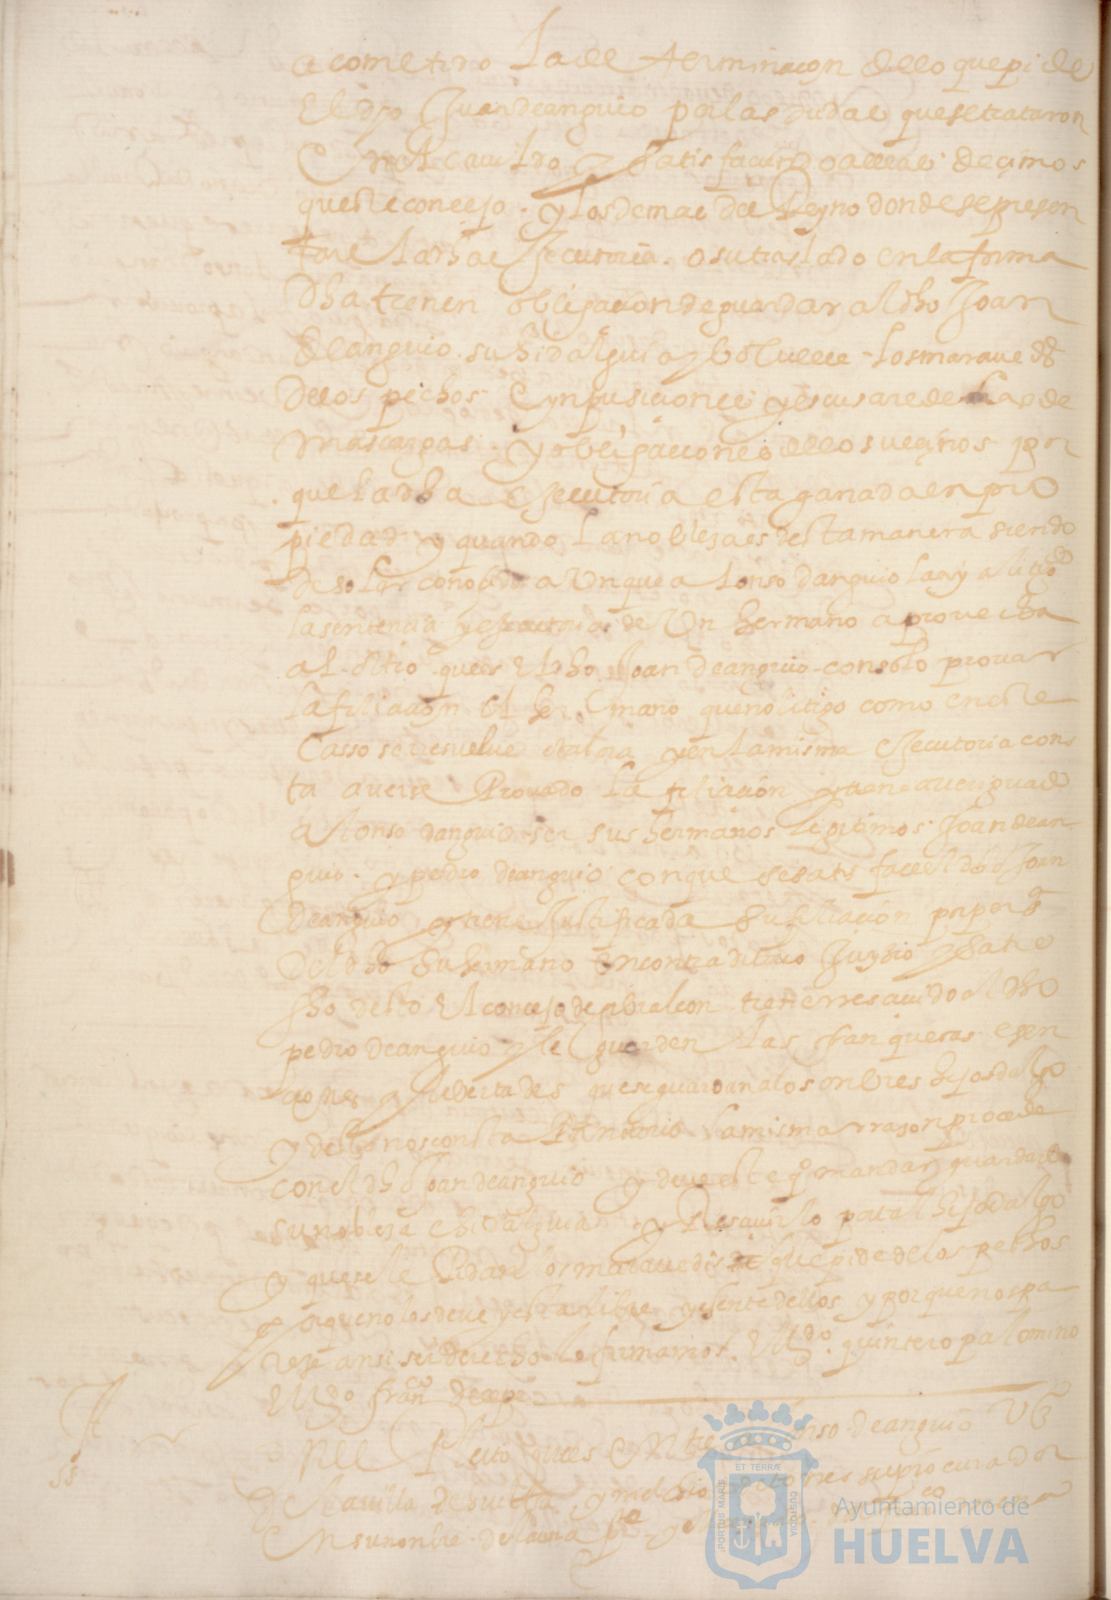 a cometiro La de terminacon dello que pi de
El dho Juan de anguio por las dudas que se trataron
En el cavildo y satis faciendo a ellas decimos
que este concejo y los demas del Reyno donde se presen
tare la dha executoria o su traslado en la forma
dha tienen obligacion de guardar al dho Joan
de anguio su hidalguia y bolverle los marave ds
de los pechos e ynpusiciones y escusarle de las de
mas cargas y obligaciones de los vecinos por
que la dha executoria esta ganada en pro
piedad y quando la nobleza es desta manera siendo
de solar conocido aunque alonso danguio la aya litigdo
la sentencia y executoria de un hermano a provecha
al otro que es el dho Joan de anguio con solo provar
la filiacion el hermano que no litigo como en este
casso se resuelve y en la misma executoria cons
ta averse Provado la filiacion y tiene averiguado
alonso danguio ser sus hermanos legitimos Joan de an
guio y pedro de anguio con que se satisface el dho Joan
de anguio y tiene Justificada su filiacion
del dho su hermano en contraditorio Juyzio y satis
fho desto el concejo de gibraleon tiene rrescevido al dho
pedro de anguio y le guarden las franquesas esen
ciones y libertades que se guardan a los onbres hijos dalgo
y desto nos consta la misma rrason procede
con el dho Joan de anguio y deve este qo mandar guardarle
su nobleza e hidalguia y Resevirlo por tal hijodalgo
y que se le los maravedis que pide de los pechos
que no los deve y esta libre y esente dellos y porque nos pa
rese ansi ser derecho lo firmamos El Ldo quintero palomino
El Ldo franco de
pleito que es entre alonso de anguio vo
de la villa de huelva y su procurador
En su nonbre de la una pte y
Ayuntamiento de
HUELVA
PORTUS MARIS
ET TERRÆ
CUSTODIA